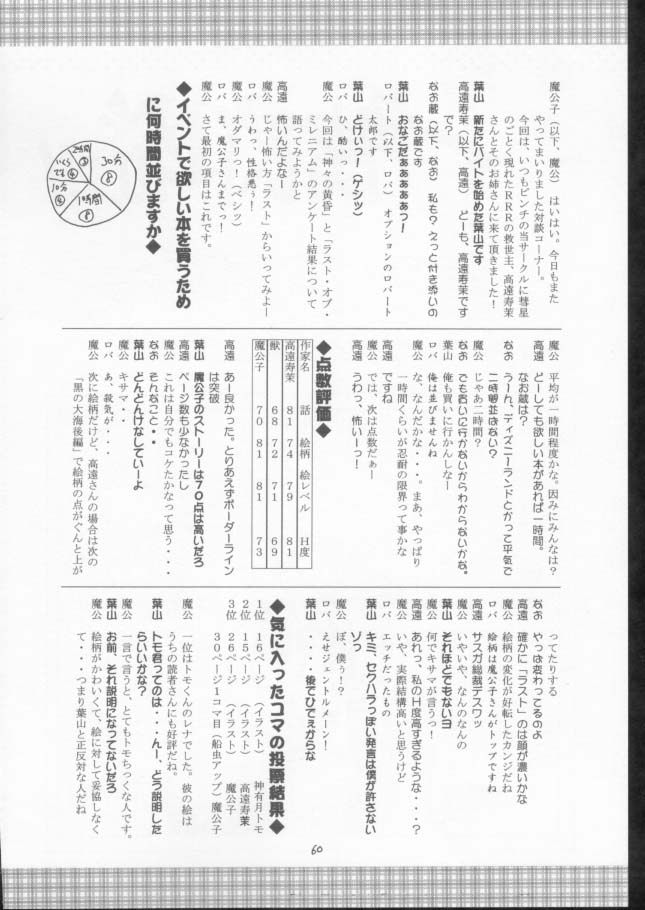 魔公子（以下、魔公）　はいはい。今日もまた
やってまいりました対談コーナー。
今回は、いつもピンチの当サークルに彗星
のごとく現れたＲＲＲの救世主、高遠寿茉
さんとそのお姉さんに来て頂きました！
葉山　新たにバイトを始めた葉山です
高遠寿茉（以下、高遠）　どーも、高遠寿茉です
で？
なお蔵（以下、なお）　私も？えっと付き添いの
なお蔵です
葉山　おなごだぁぁぁぁぁっ！
ロバート（以下、ロバ）　オプションのロバート
太郎です
葉山　どけぃっ！（ゲシッ）
ロバ　ひ、酷いっ・・・
魔公　今回は「神々の黄昏」と「ラスト・オブ・
ミレニアム」のアンケート結果について
語ってみようかと
高遠　怖いんだよなー
魔公　じゃー怖い方「ラスト」からいってみよー
ロバ　うわっ、性格悪ぅ！
魔公　オダマリっ！（ベシッ）
ロバ　ま、魔公子さんまでっ！
魔公　さて最初の項目はこれです。
◆イベントで欲しい本を買うため
に何時間並びますか◆
30分
⑧
1時間
⑧
10分
④
いくら
でも④
2時間
③
魔公　平均が一時間程度かな。因みにみんなは？
高遠　どーしても欲しい本があれば一時間。
なお蔵は？
なお　うーん、ディズニーランドとかって平気で
二時間並ばない？
魔公　じゃあ二時間？
なお　でも買いに行かないからわからないかな。
葉山　俺も買いに行かんしなー
ロバ　俺は並びませんね
魔公　な、なんだかな・・・。まあ、やっぱり
一時間くらいが忍耐の限界って事かな
高遠　ですね
魔公　では、次は点数だぁー
高遠　うわっ、怖いーっ！
◆点数評価◆
作家名　話　絵柄　絵レベル　Ｈ度
高遠寿茉　81　74　79　81
獣　68　72　71　69
魔公子　70　81　81　73
高遠　あー良かった。とりあえずボーダーライン
は突破
葉山　魔公子のストーリーは７０点は高いだろ
高遠　ページ数も少なかったし
魔公　これは自分でもコケたかなって思う・・・
なお　そんなこと・・
葉山　どんどんけなしていーよ
魔公　キサマ・・
ロバ　あ、殺気が・・・
魔公　次に絵柄だけど、高遠さんの場合は次の
「黒の大海後編」で絵柄の点がぐんと上が
ってたりする
なお　やっぱ変わってるのよ
高遠　確かに「ラスト」のは顔が濃いかな
魔公　絵柄の変化が好転したカンジだね
ロバ　絵柄は魔公子さんがトップですね
高遠　サスガ総裁デスワッ
魔公　いやいや、なんのなんの
葉山　それほどでもないヨ
魔公　何でキサマが言うっ！
高遠　あれっ、私のＨ度高すぎるような・・・？
魔公　いや、実際結構高いと思うけど
ロバ　エッチだったもの
葉山　キミ、セクハラっぽい発言は僕が許さない
ゾっ
魔公　ぼ、僕ぅ！？
ロバ　えせジェントルメーン！
葉山　・・・・後でひでえからな
◆気に入ったコマの投票結果◆
１位　１６ページ（イラスト）　神有月トモ
２位　１５ページ（イラスト）　高遠寿茉
３位　２６ページ（イラスト）　魔公子
３０ページ１コマ目（船虫アップ）魔公子
魔公　一位はトモくんのレナでした。彼の絵は
うちの読者さんにも好評だね。
葉山　トモ君っては・・・んー、どう説明した
らいいかな？
魔公　一言で言うと、とてもトモちっくな人です。
葉山　お前、それ説明になってないだろ
魔公　絵柄がかわいくて、絵に対して妥協しなく
て・・・・つまり葉山と正反対な人だね
60